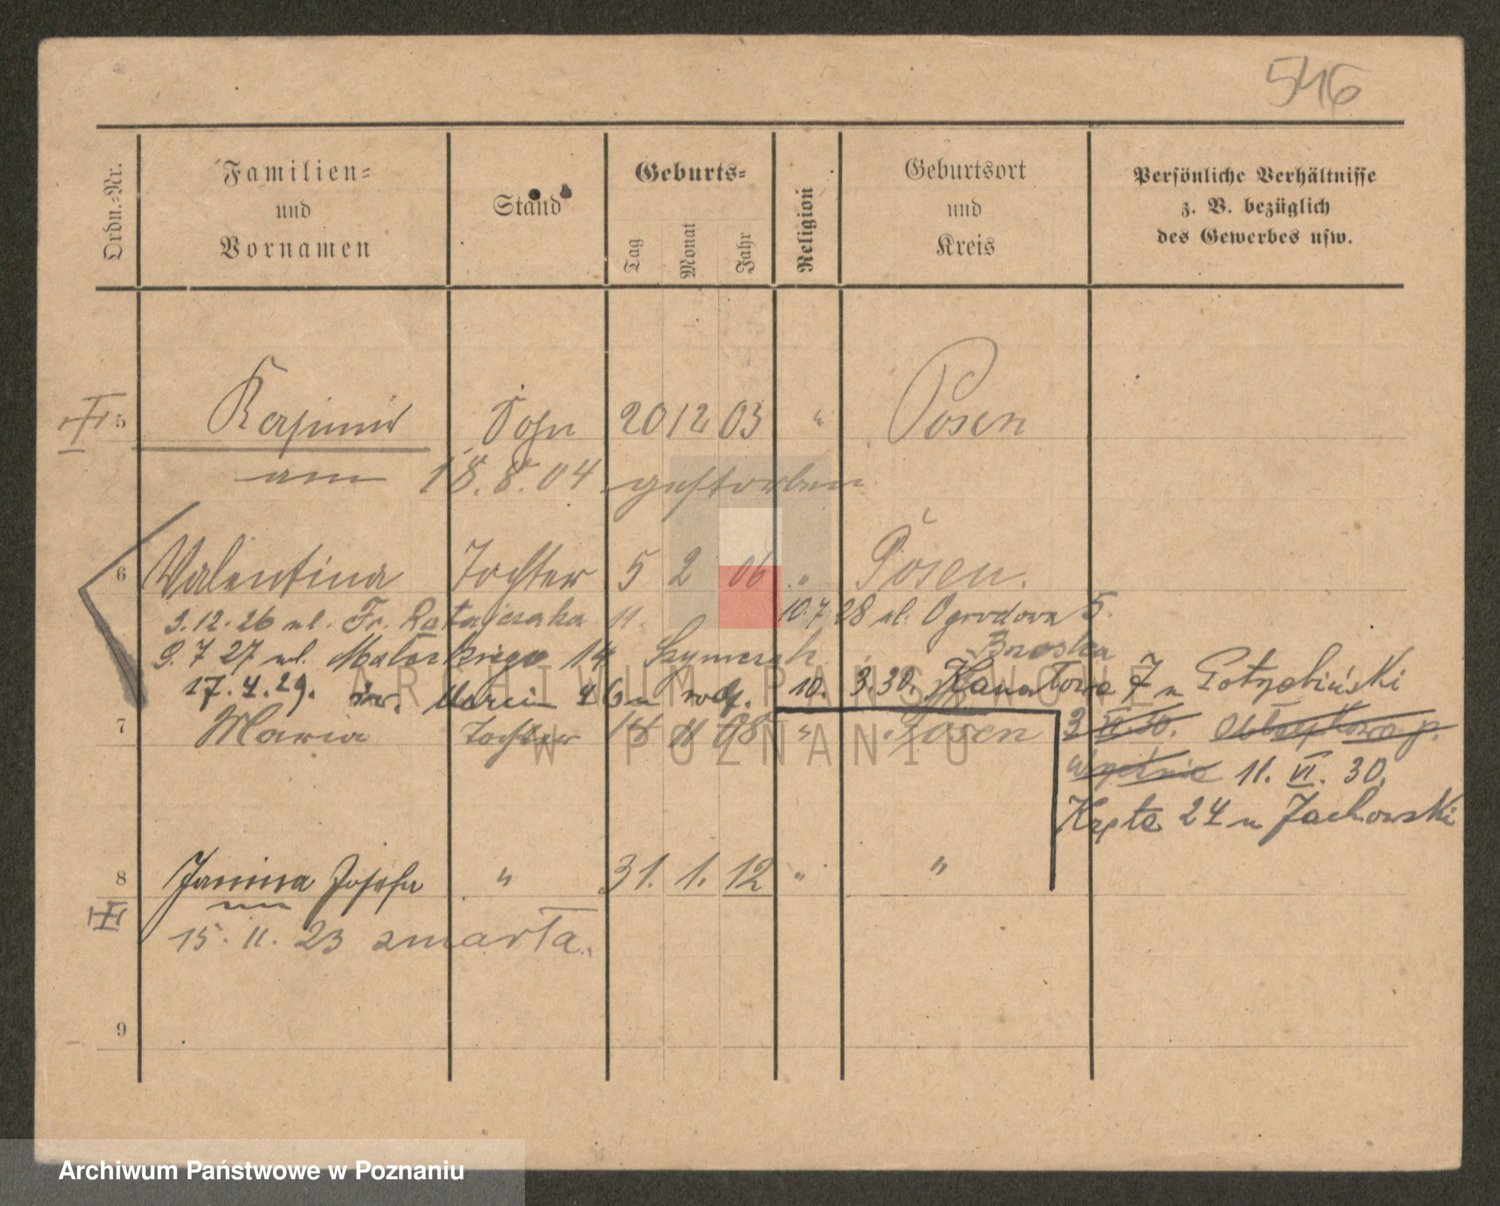 546
Ordn.-Nr.
Familien-
und
Vornamen
Stand
Geburts-
Tag
Monat
Jahr
Religion
Geburtsort
und
Kreis
Persönliche Verhältnisse
z. B. bezüglich
des Gewerbes usw.
5 Kasimir Sohn 20 12 03 " Posen
am 18.8.04 gestorben
6 Valentina Tochter 5 2 06 " Posen.
9.12.26 ul. Fr. Ratajczaka 11. 10.7.28 ul. Ogrodowa 5.
9.7 27 ul. Małeckiego 14 Szymczak Broska
17.4.29. św. Marcin 46 u rodz. 10. 3.30. Kanałowa 7 u Gołębiński
7 Maria Tochter 15 11 08 " Posen
11. VI. 30.
Kręta 24 u Jachowski
8 Janina Josefa " 31. 1. 12 " "
15. 11. 23 zmarła.
9
ARCHIWUM PAŃSTWOWE
W POZNANIU
Archiwum Państwowe w Poznaniu